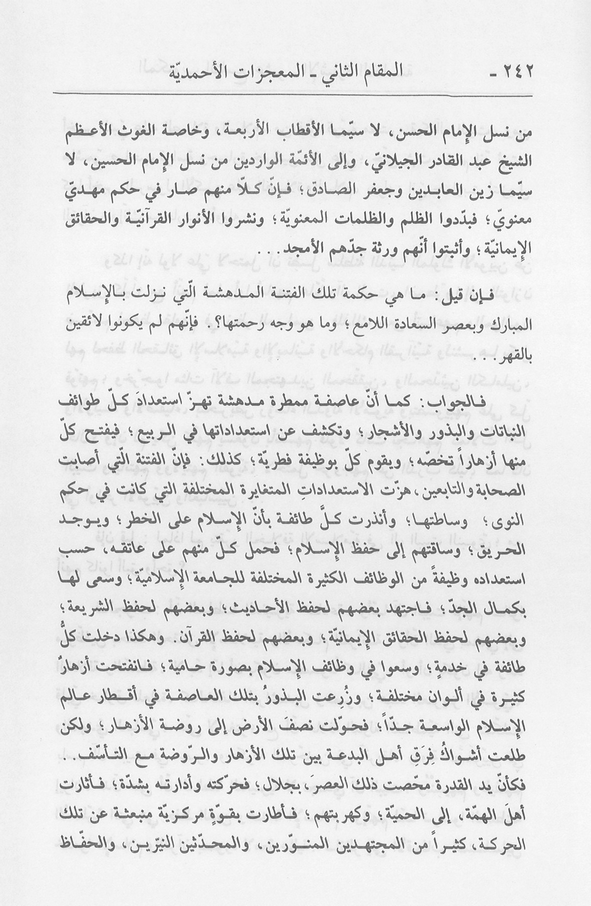 ٢٤٢ - المقام الثاني - المعجزات الأحمديّة
من نسل الإمام الحسن، لا سيّما الأقطاب الأربعة، وخاصة الغوث الأعظم
الشيخ عبد القادر الجيلانيّ، وإلى الأئمّة الواردين من نسل الإمام الحسين، لا
سيّما زين العابدين وجعفر الصادق؛ فإنّ كلّا منهم صار في حكم مهديّ
معنويّ؛ فبدّدوا الظلم والظلمات المعنويّة؛ ونشروا الأنوار القرآنيّة والحقائق
الإيمانيّة؛ وأثبتوا أنّهم ورثة جدّهم الأمجد...
فإن قيل: ما هي حكمة تلك الفتنة المدهشة الّتي نزلت بالإسلام
المبارك وبعصر السعادة اللامع؛ وما هو وجه رحمتها؟. فإنّهم لم يكونوا لائقين
بالقهر...
فالجواب: كما أنّ عاصفة ممطرة مدهشة تهزّ استعدادَ كلّ طوائف
النباتات والبذور والأشجار؛ وتكشف عن استعداداتها في الربيع؛ فيفتح كلّ
منها أزهاراً تخصّه؛ ويقوم كلّ بوظيفة فطريّة؛ كذلك: فإنّ الفتنة الّتي أصابت
الصحابة والتابعين، هزّت الاستعداداتِ المتغايرة المختلفة التي كانت في حكم
النوى؛ وساطتها؛ وأنذرت كلّ طائفة بأنّ الإسلام على الخطر؛ ويوجد
الحريق؛ وساقتهم إلى حفظ الإسلام؛ فحمل كلّ منهم على عاتقه، حسب
استعداده وظيفةً من الوظائف الكثيرة المختلفة للجامعة الإسلاميّة؛ وسعى لها
بكمال الجدّ؛ فاجتهد بعضهم لحفظ الأحاديث؛ وبعضهم لحفظ الشريعة؛
وبعضهم لحفظ الحقائق الإيمانيّة؛ وبعضهم لحفظ القرآن. وهكذا دخلت كلُّ
طائفة في خدمةٍ؛ وسعوا في وظائف الإسلام بصورة حامية؛ فانفتحت أزهارٌ
كثيرة في ألوان مختلفة؛ وزُرِعت البذورُ بتلك العاصفة في أقطار عالم
الإسلام الواسعة جدّاً؛ فحوّلت نصفَ الأرض إلى روضة الأزهار؛ ولكن
طلعت أشواكُ فِرَقِ أهل البدعة بين تلك الأزهار والرّوضة مع التأسّف..
فكأنّ يد القدرة مخّصت ذلك العصرَ، بجلال؛ فحرّكته وأدارته بشدّة؛ فأثارت
أهلَ الهمّة، إلى الحميّة؛ وكهربتهم؛ فأطارت بقوّةٍ مركزيّة منبعثة عن تلك
الحركة، كثيراً من المجتهدين المنوّرين، والمحدّثين النيّرين، والحفّاظ